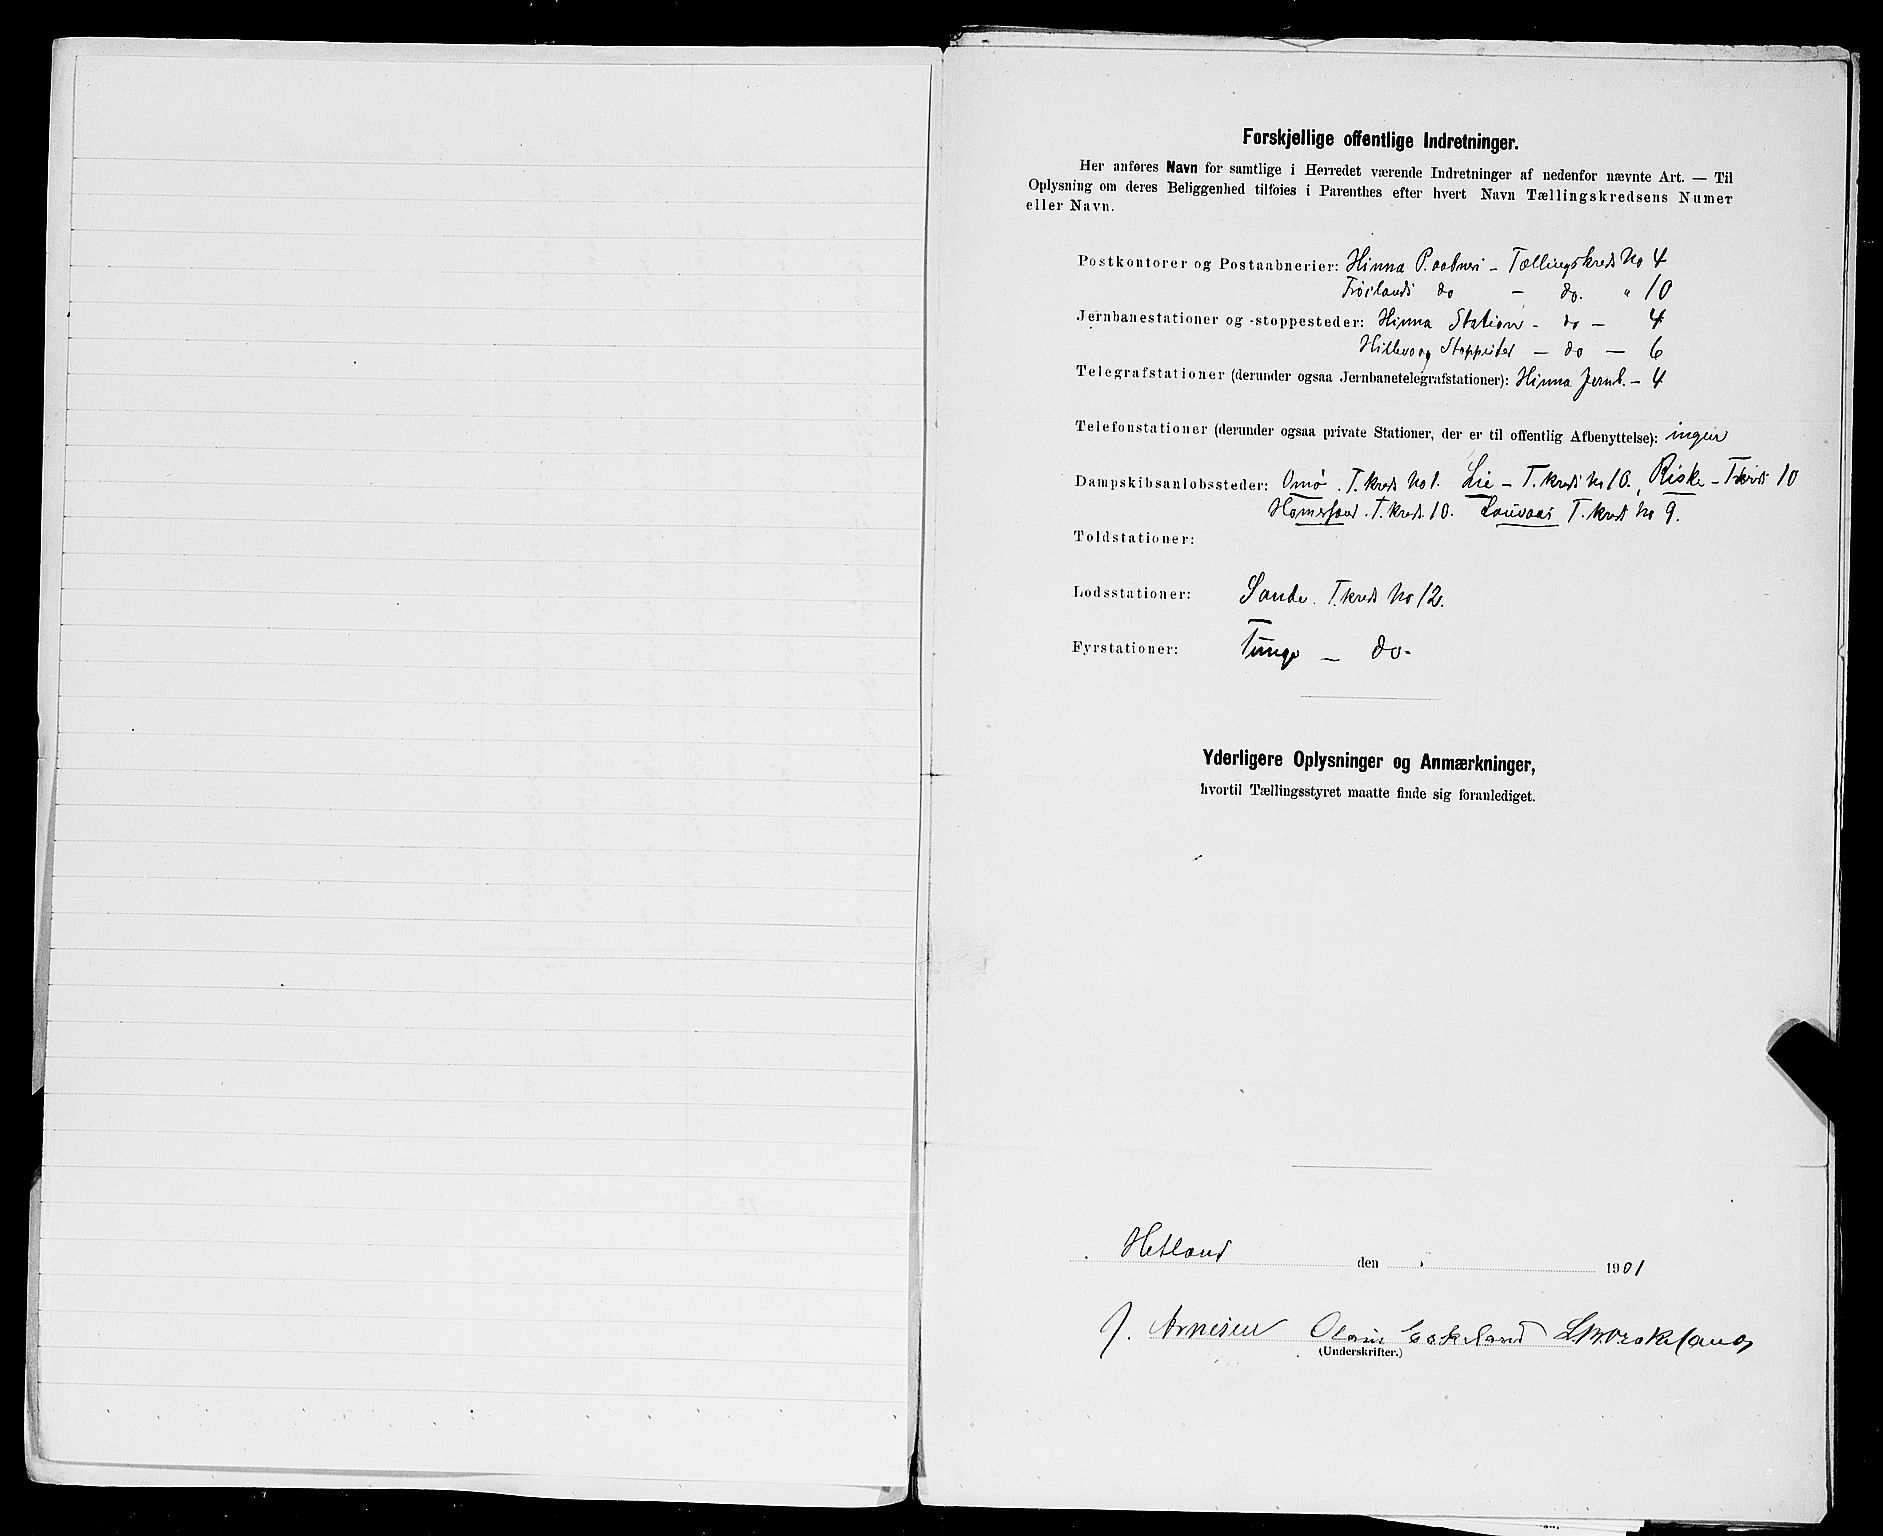 Forskjellige offentlige Indretninger.
Her anføres Navn for samtlige i Herredet værende Indretninger af nedenfor nævnte Art. — Til
Oplysning om deres Beliggenhed tilføies i Parenthes efter hvert Navn Tællingskredsens Numer
eller Navn.
Postkontorer og Postaabnerier: Hinna P.aabneri - Tællingskreds No 4
do - do. " 10
Jernbanestationer og -stoppesteder: Hinna Station - do - 4
Hillevaag Stoppested - do - 6
Telegrafstationer (derunder ogsaa Jernbanetelegrafstationer): Hinna Jernb. - 4
Telefonstationer (derunder ogsaa private Stationer, der er til offentlig Afbenyttelse): ingen
Dampskibsanløbssteder: Omø. T.kreds No 1. Lie - T.kreds No 10., Riske - T.kreds 10
T.kreds 10. T.kreds No 9.
Toldstationer:
Lodsstationer: Sande. T.kreds No 12.
Fyrstationer: Tunge - do-
Yderligere Oplysninger og Anmærkninger,
hvortil Tællingsstyret maatte finde sig foranlediget.
Hetland den 1901
J. Arnesen
(Underskrifter.)